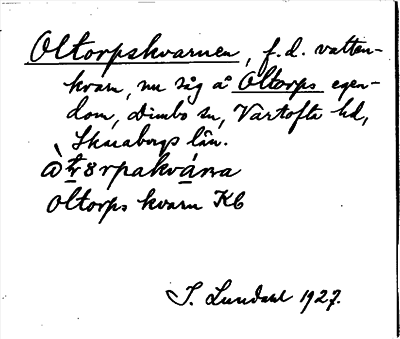 Oltorpskvarnen, f.d. vatten-
kvarn, nu såg å Oltorps egen-
dom, Dimbo sn, Vartofta hd,
Skaraborgs län.
Oltorps kvarn KC
I. Lundahl 1927.